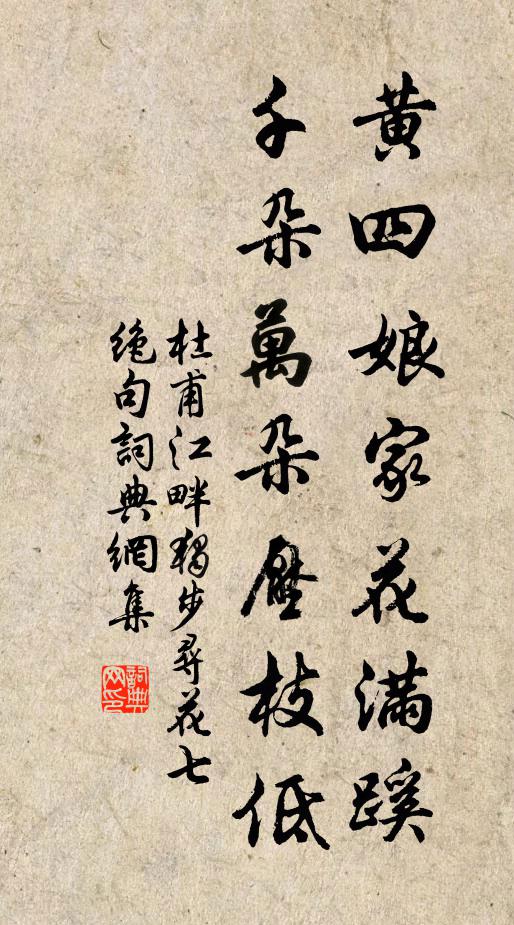 黄四娘家花滿蹊
千朵萬朵壓枝低
杜甫江畔獨步尋花七
絶句詞典網集
詞典
网印